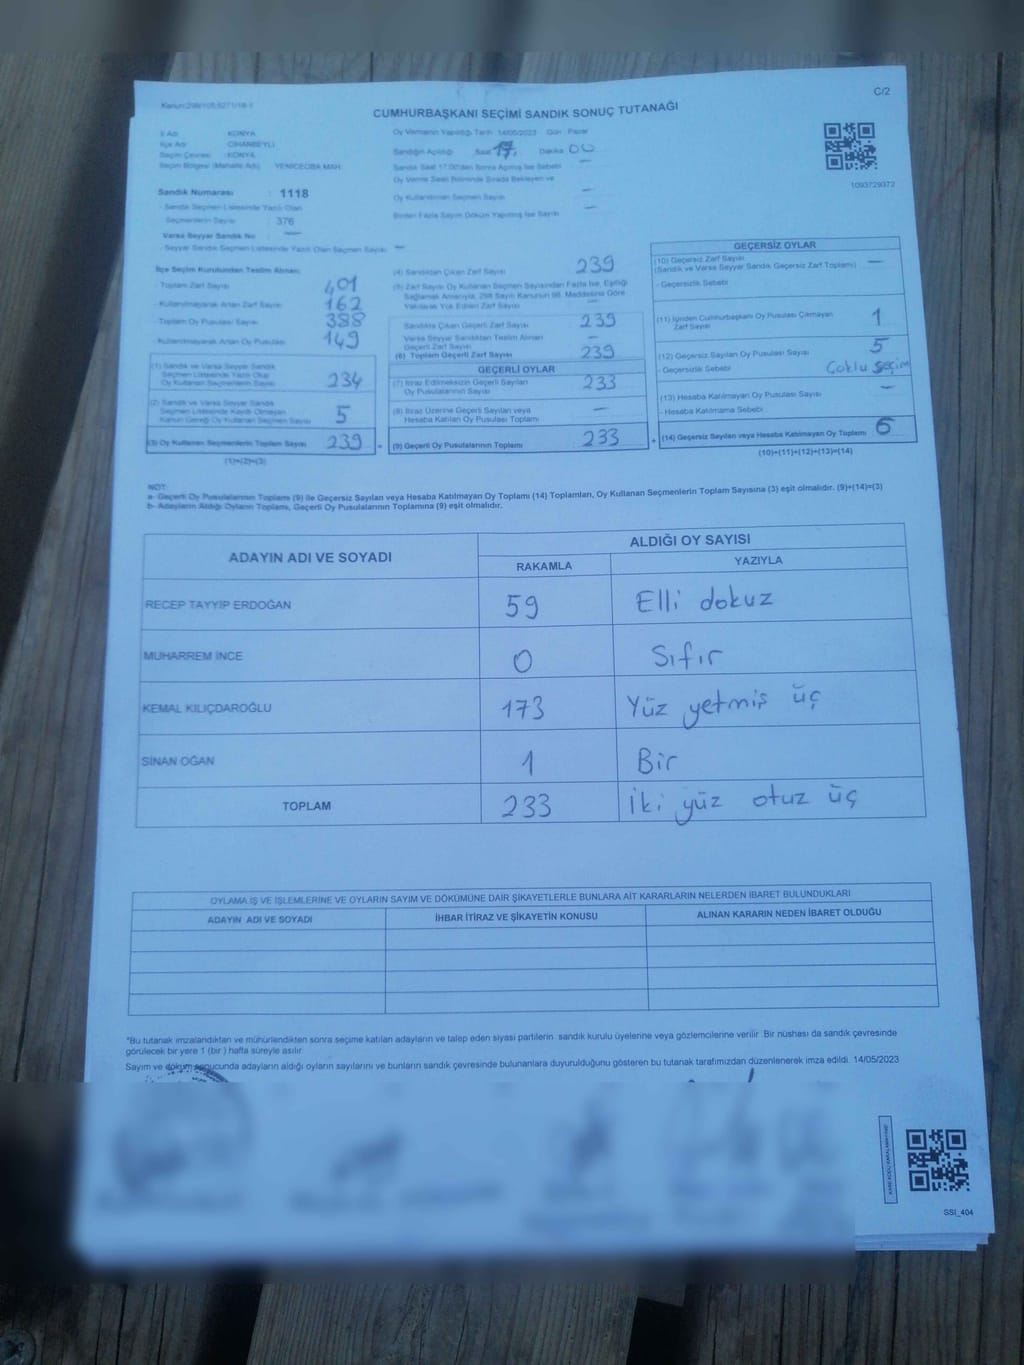 Kanun:298/105,6271/18-1
C/2
CUMHURBAŞKANI SEÇİMİ SANDIK SONUÇ TUTANAĞI
1093729372
İl Adı : KONYA
İlçe Adı : CİHANBEYLİ
Seçim Çevresi : KONYA
Seçim Bölgesi (Mahalle Adı) : YENİCEOBA MAH.
Sandık Numarası : 1118
- Sandık Seçmen Listesinde Yazılı Olan
Seçmenlerin Sayısı : 376
Varsa Seyyar Sandık No : —
- Seyyar Sandık Seçmen Listesinde Yazılı Olan Seçmen Sayısı : —
Oy Vermenin Yapıldığı Tarih : 14/05/2023 Gün : Pazar
Sandığın Açıldığı Saat 17, Dakika 00
Sandık Saat 17:00'den Sonra Açılmış İse Sebebi —
Oy Verme Saati Bitiminde Sırada Bekleyen ve
Oy Kullandırılan Seçmen Sayısı —
Birden Fazla Sayım Döküm Yapılmış İse Sayısı —
İlçe Seçim Kurulundan Teslim Alınan;
- Toplam Zarf Sayısı 401
- Kullanılmayarak Artan Zarf Sayısı 162
- Toplam Oy Pusulası Sayısı 388
- Kullanılmayarak Artan Oy Pusulası 149
(1) Sandık ve Varsa Seyyar Sandık
Seçmen Listesinde Yazılı Olup
Oy Kullanan Seçmenlerin Sayısı 234
(2) Sandık ve Varsa Seyyar Sandık
Seçmen Listesinde Kayıtlı Olmayan
Kanun Gereği Oy Kullanan Seçmen Sayısı 5
(3) Oy Kullanan Seçmenlerin Toplam Sayısı 239
(1)+(2)=(3)
(4) Sandıktan Çıkan Zarf Sayısı 239
(5) Zarf Sayısı Oy Kullanan Seçmen Sayısından Fazla İse, Eşitliği
Sağlamak Amacıyla, 298 Sayılı Kanunun 98. Maddesine Göre
Yakılarak Yok Edilen Zarf Sayısı —
Sandıkta Çıkan Geçerli Zarf Sayısı 239
Varsa Seyyar Sandıktan Teslim Alınan
Geçerli Zarf Sayısı —
(6) Toplam Geçerli Zarf Sayısı 239
GEÇERLİ OYLAR
(7) İtiraz Edilmeksizin Geçerli Sayılan
Oy Pusulalarının Sayısı 233
(8) İtiraz Üzerine Geçerli Sayılan veya
Hesaba Katılan Oy Pusulası Toplamı —
(9) Geçerli Oy Pusulalarının Toplamı 233
GEÇERSİZ OYLAR
(10) Geçersiz Zarf Sayısı
(Sandık ve Varsa Seyyar Sandık Geçersiz Zarf Toplamı) —
- Geçersizlik Sebebi
(11) İçinden Cumhurbaşkanı Oy Pusulası Çıkmayan
Zarf Sayısı 1
(12) Geçersiz Sayılan Oy Pusulası Sayısı 5
- Geçersizlik Sebebi Çoklu seçim
(13) Hesaba Katılmayan Oy Pusulası Sayısı —
- Hesaba Katılmama Sebebi
(14) Geçersiz Sayılan veya Hesaba Katılmayan Oy Toplamı 6
(10)+(11)+(12)+(13)=(14)
NOT:
a- Geçerli Oy Pusulalarının Toplamı (9) ile Geçersiz Sayılan veya Hesaba Katılmayan Oy Toplamı (14) Toplamları, Oy Kullanan Seçmenlerin Toplam Sayısına (3) eşit olmalıdır. (9)+(14)=(3)
b- Adayların Aldığı Oyların Toplamı, Geçerli Oy Pusulalarının Toplamına (9) eşit olmalıdır.
ADAYIN ADI VE SOYADI
ALDIĞI OY SAYISI
RAKAMLA YAZIYLA
RECEP TAYYİP ERDOĞAN 59 Elli dokuz
MUHARREM İNCE 0 Sıfır
KEMAL KILIÇDAROĞLU 173 Yüz yetmiş üç
SİNAN OĞAN 1 Bir
TOPLAM 233 İki yüz otuz üç
OYLAMA İŞ VE İŞLEMLERİNE VE OYLARIN SAYIM VE DÖKÜMÜNE DAİR ŞİKAYETLERLE BUNLARA AİT KARARLARIN NELERDEN İBARET BULUNDUKLARI
ADAYIN ADI VE SOYADI İHBAR İTİRAZ VE ŞİKAYETİN KONUSU ALINAN KARARIN NEDEN İBARET OLDUĞU
*Bu tutanak imzalandıktan ve mühürlendikten sonra seçime katılan adayların ve talep eden siyasi partilerin sandık kurulu üyelerine veya gözlemcilerine verilir. Bir nüshası da sandık çevresinde
görülecek bir yere 1 (bir) hafta süreyle asılır.
Sayım ve döküm sonucunda adayların aldığı oyların sayılarını ve bunların sandık çevresinde bulunanlara duyurulduğunu gösteren bu tutanak tarafımızdan düzenlenerek imza edildi. 14/05/2023
SSI_404